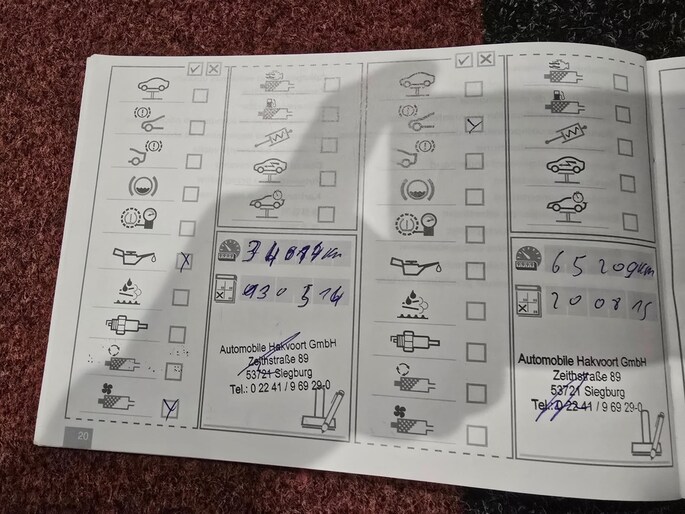 Km
Automobile Hakvoort GmbH
Zeithstraße 89
53721 Siegburg
Tel.: 0 22 41 / 9 69 29-0
20
65209Km
200815
Automobile Hakvoort GmbH
Zeithstraße 89
53721 Siegburg
Tel.: 0 22 41 / 9 69 29-0